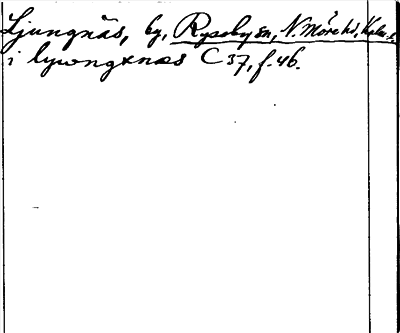 Ljungnäs, by, Ryssby sn, N. Möre hd, Kalm. l.
i lywngxnæs C 37, f. 46.